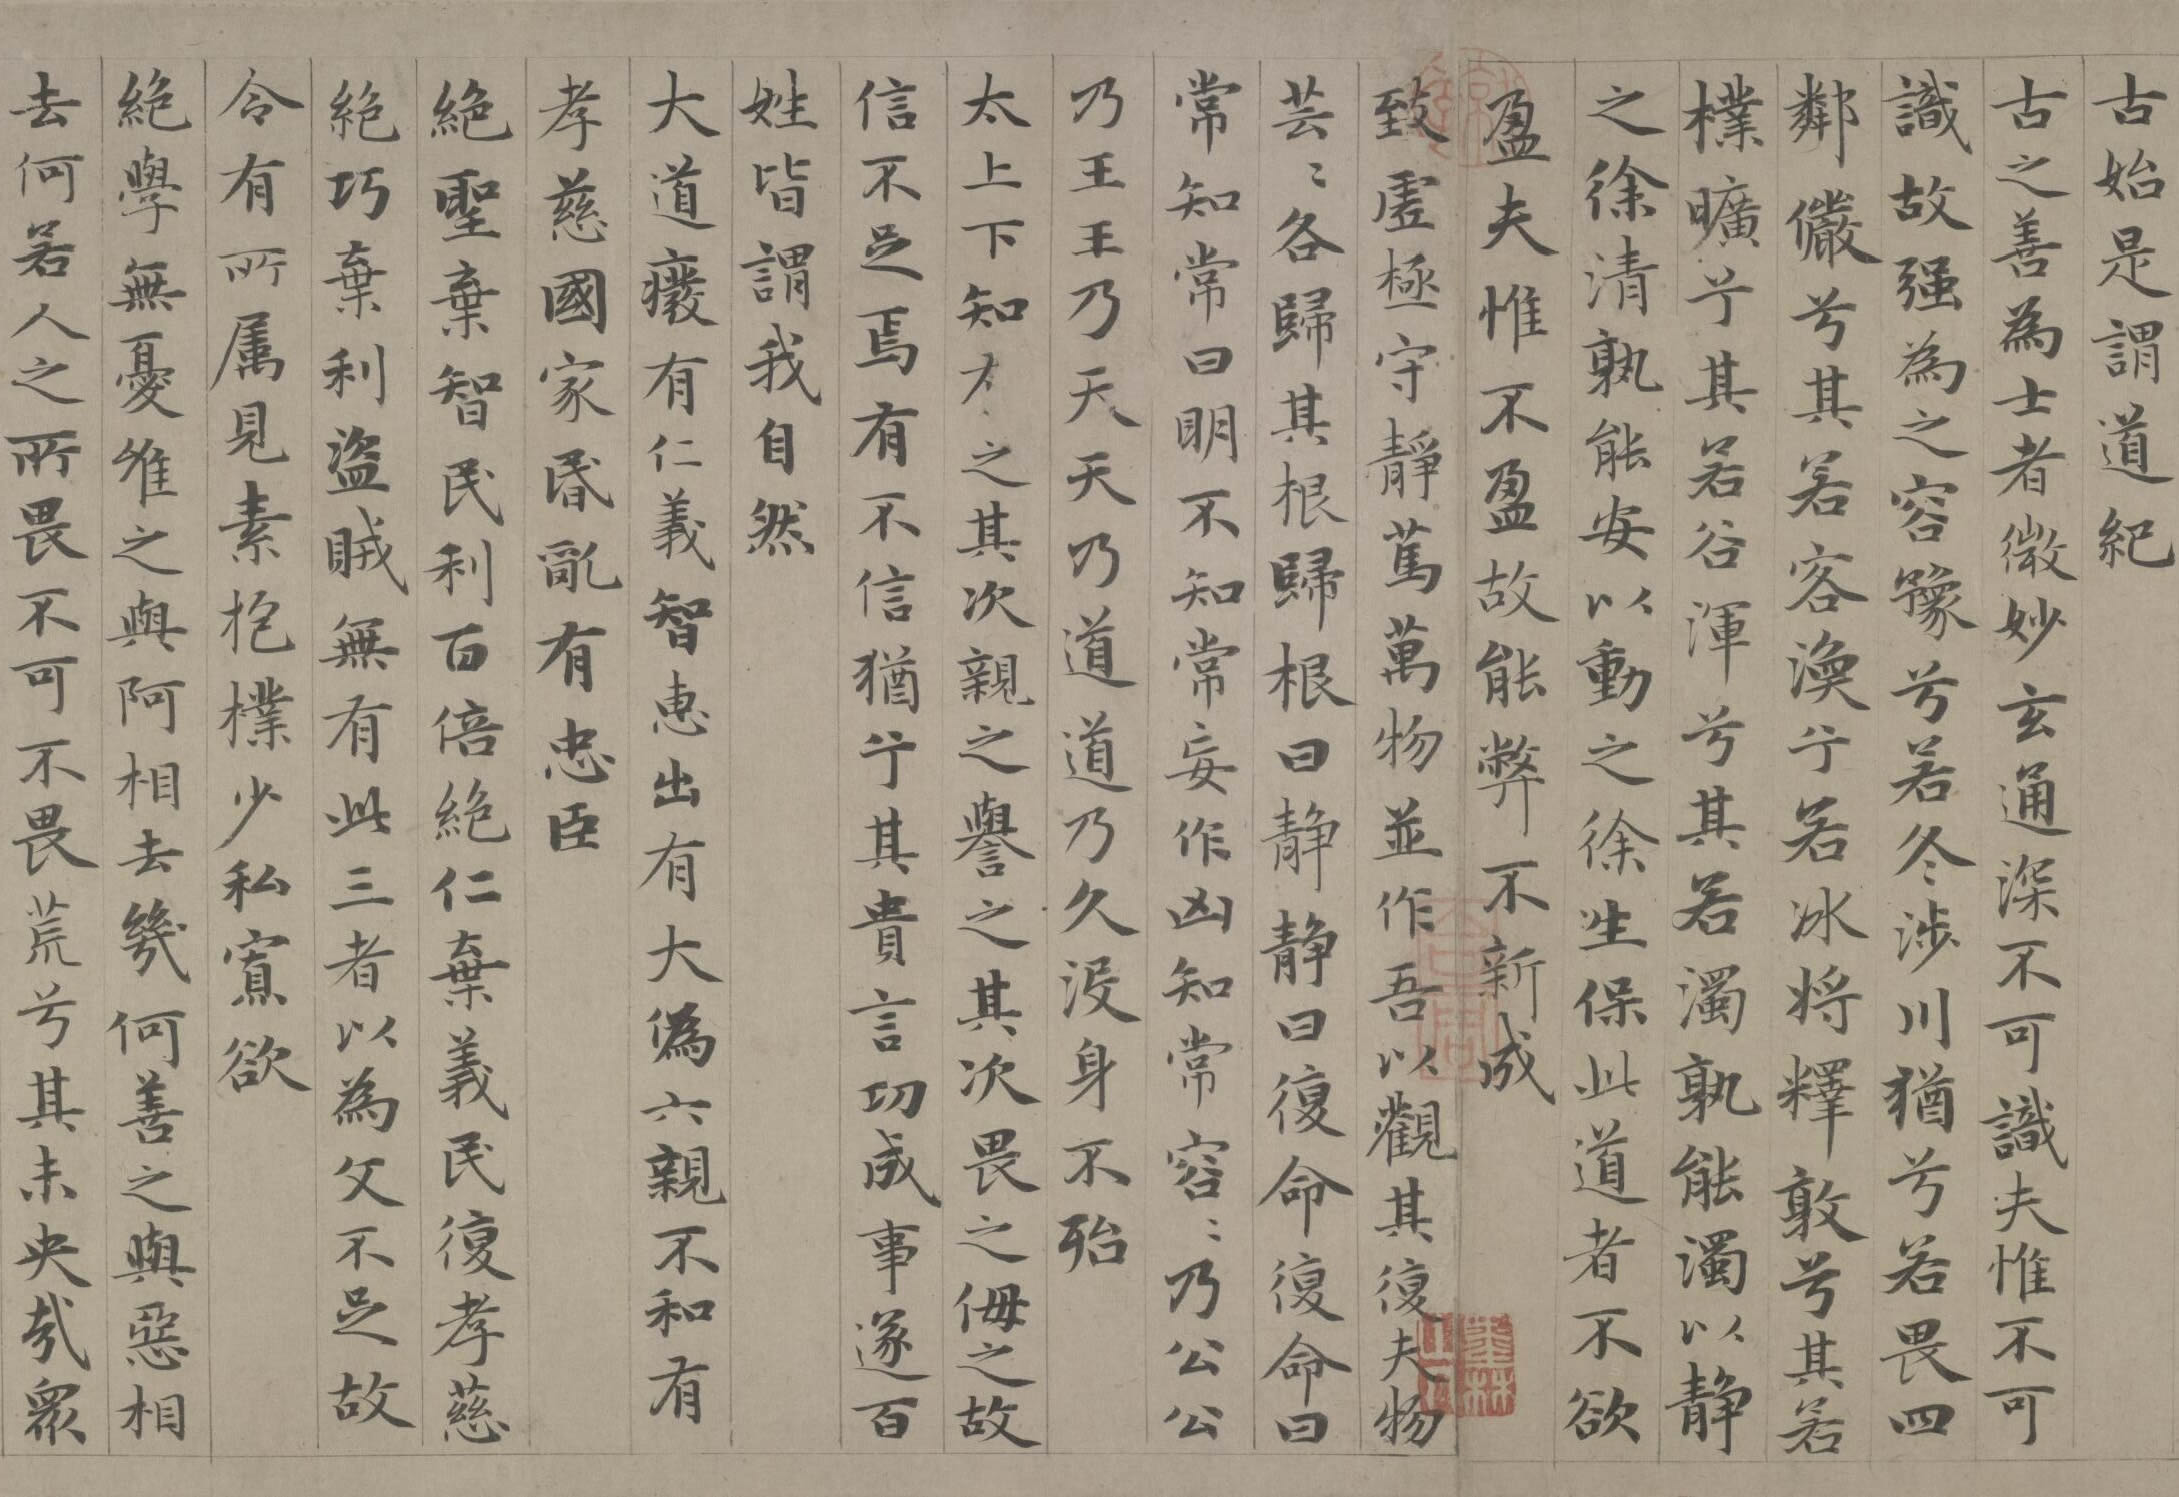 古始是謂道紀
古之善為士者微妙玄通深不可識夫惟不可
識故强為之容豫兮若冬涉川猶兮若畏四
鄰儼兮其若客渙兮若冰將釋敦兮其若
樸曠兮其若谷渾兮其若濁孰能濁以靜
之徐清孰能安以動之徐生保此道者不欲
盈夫惟不盈故能弊不新成
致虛極守靜篤萬物並作吾以觀其復夫物
芸〻各歸其根歸根曰靜靜曰復命復命曰
常知常曰明不知常妄作凶知常容〻乃公公
乃王王乃天天乃道道乃久沒身不殆
太上下知有之其次親之譽之其次畏之侮之故
信不足焉有不信猶兮其貴言功成事遂百
姓皆謂我自然
大道癈有仁義智惠出有大偽六親不和有
孝慈國家昬亂有忠臣
絕聖棄智民利百倍絕仁棄義民復孝慈
絕巧棄利盜賊無有此三者以為文不足故
令有所属見素抱樸少私寡欲
絕學無憂唯之與阿相去幾何善之與惡相
去何若人之所畏不可不畏荒兮其未央哉眾